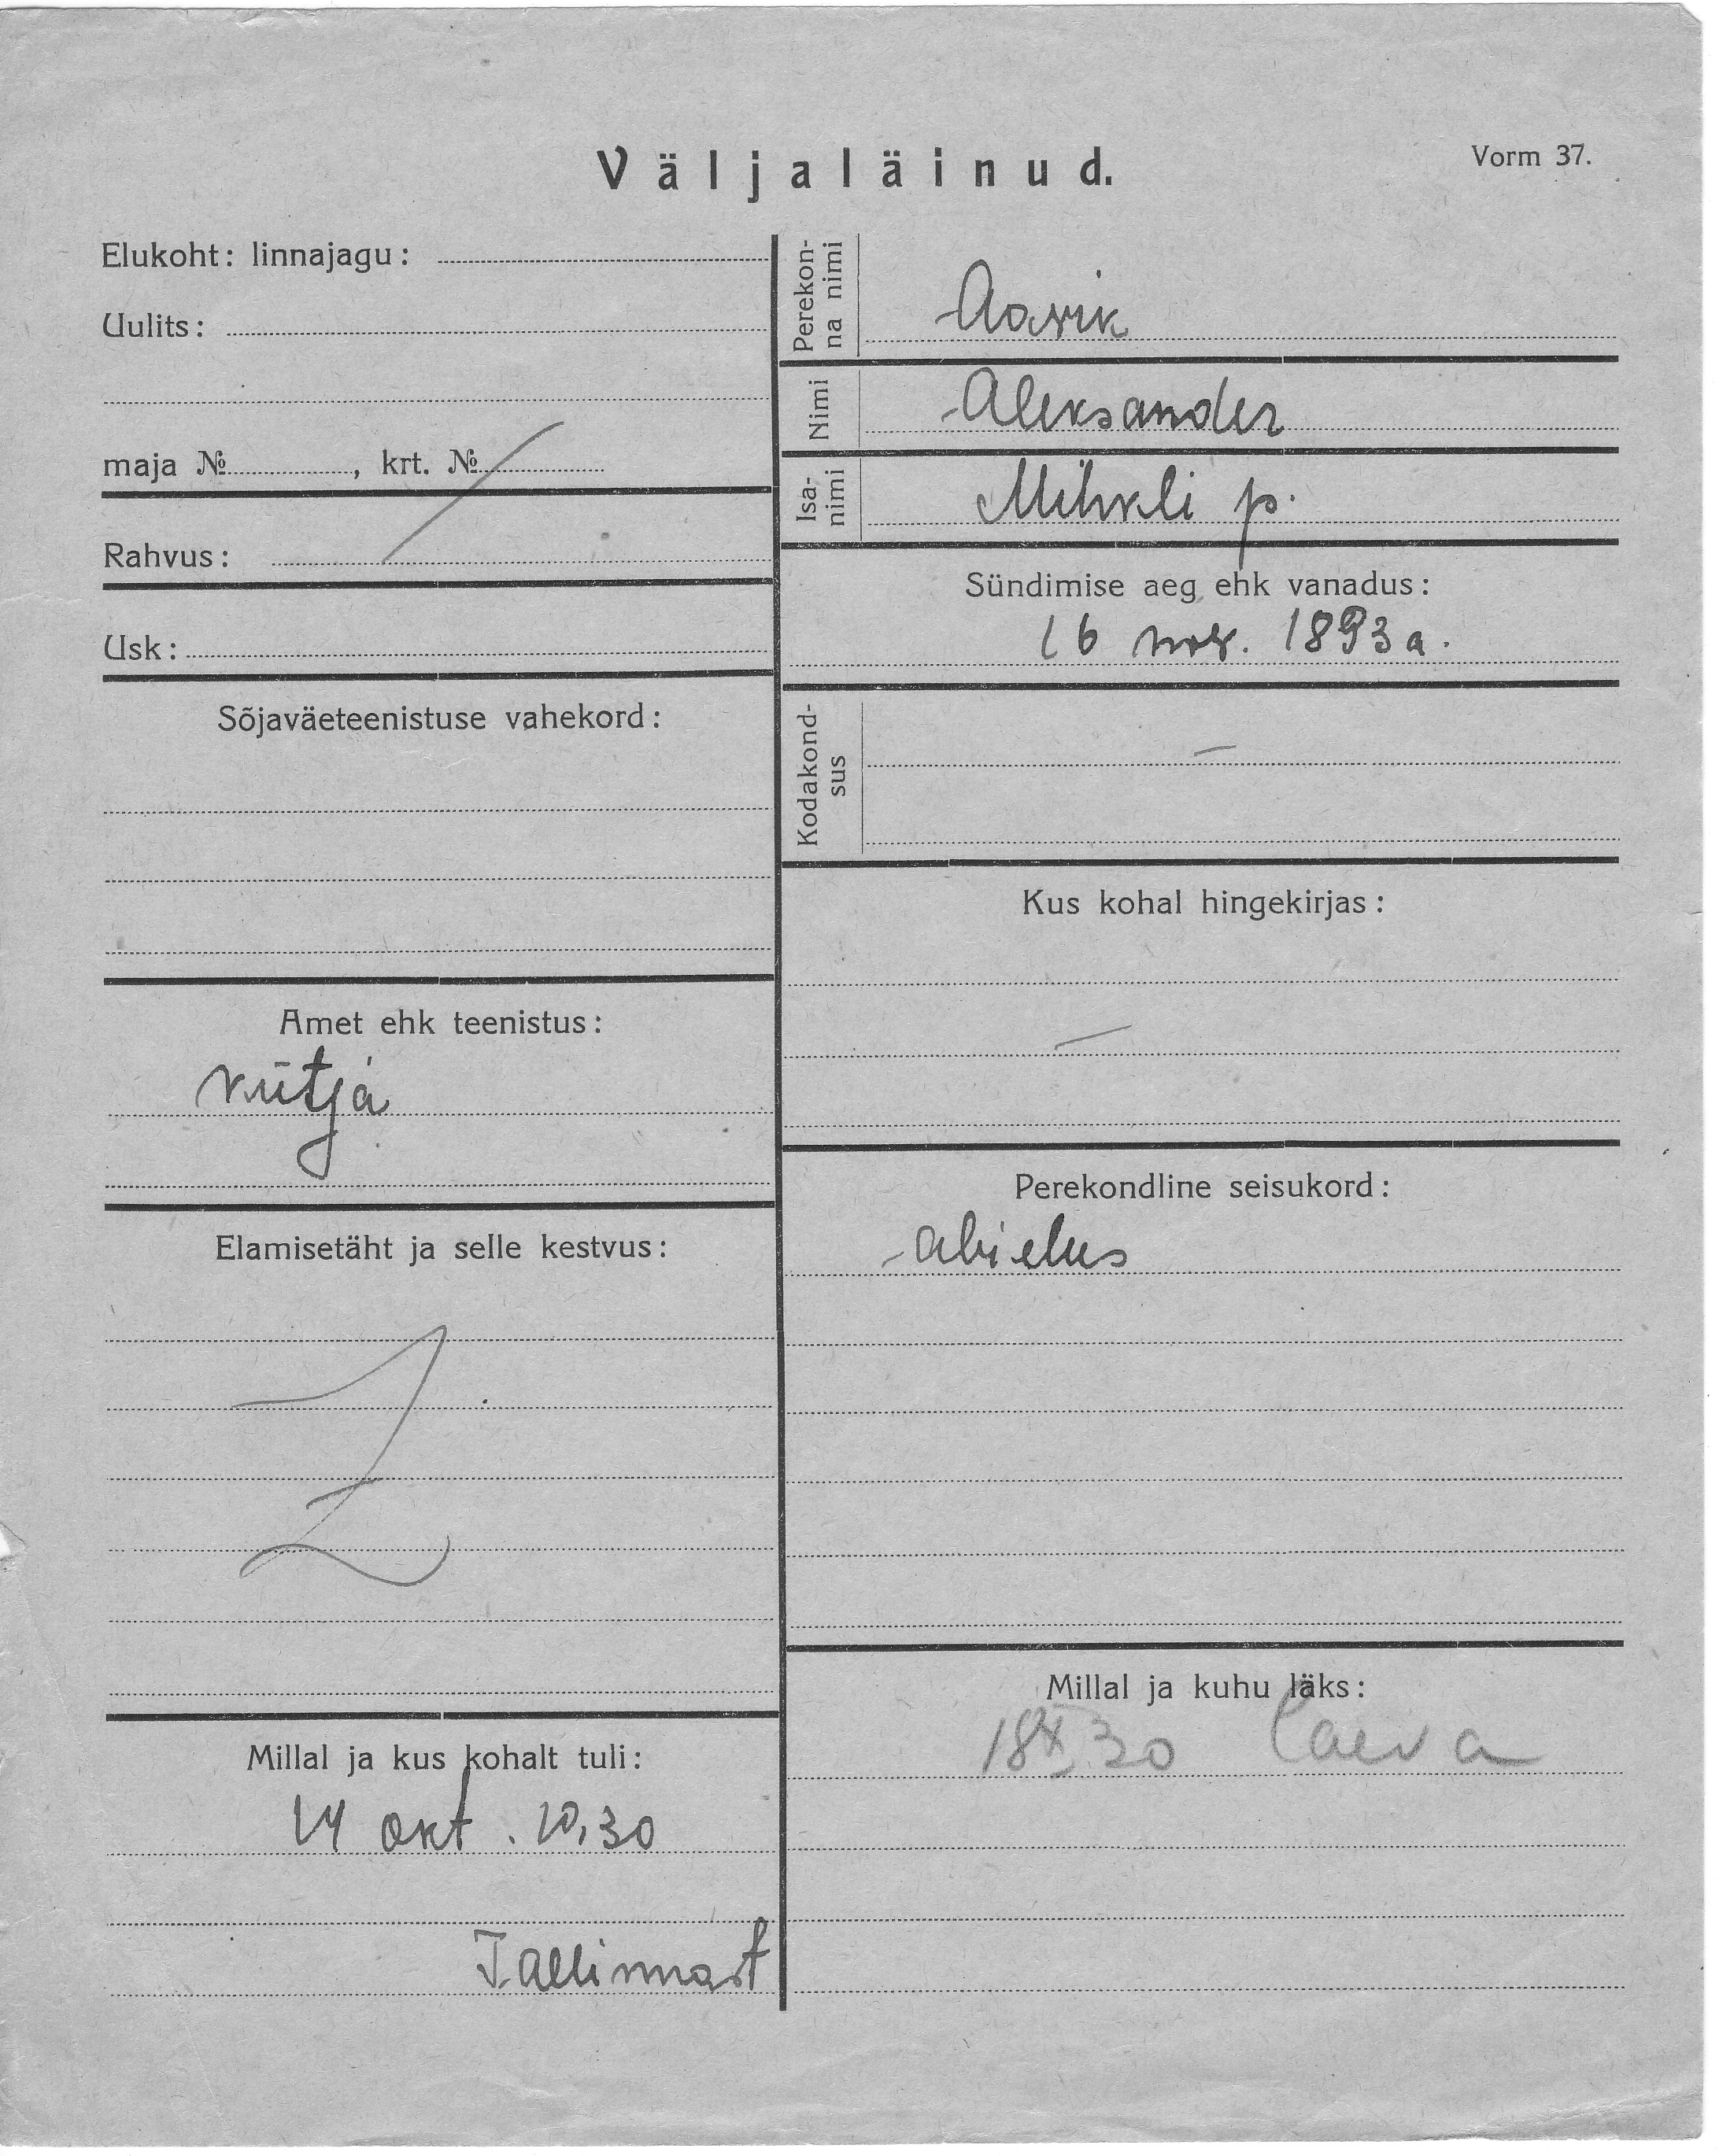 Väljaläinud.
Vorm 37.
Elukoht: linnajagu:
Uulits:
maja №, krt. №
Rahvus:
Usk:
Sõjaväeteenistuse vahekord:
Amet ehk teenistus:
kütja
Elamisetäht ja selle kestvus:
Millal ja kus kohalt tuli:
14 okt. 10,30
Tallinnast
Perekon-
na nimi
Aavik
Nimi
Aleksander
Isa-
nimi
Mihkli p.
Sündimise aeg ehk vanadus:
16 nov. 1893 a.
Kodakond-
sus
–
Kus kohal hingekirjas:
–
Perekondline seisukord:
abielus
Millal ja kuhu läks:
18 X 30 Laeva